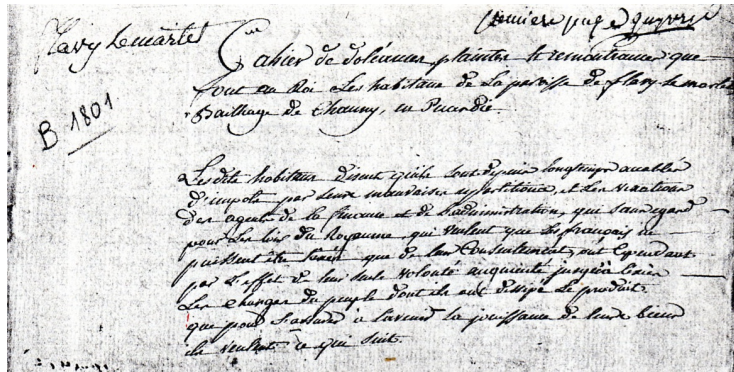 flavy Lemartel
premiere page
Cahier de doléances plaintes et remontrances que
font au Roi Les habitans de La paroisse de flavy le martel
Bailliage de Chauny, en Picardie.
B 1801
Les dits habitans disent qu'ils sont depuis longtemps accablés
d'impots par Leurs mauvaises repartitions, et Les vexations
des agents de la finance et de L'administration, qui sans egard
pour Les lois du Royaume qui veulent que Les français ne
puissent être que de leur Consentement, ont Cependant
par L'effet de leur seule volonté augmenté jusqu'à
Les Charges du peuple dont ils ont dissipé Le produit.
que pour s'assurer à l'avenir la jouissance de leurs biens
ils veulent ce qui suit.